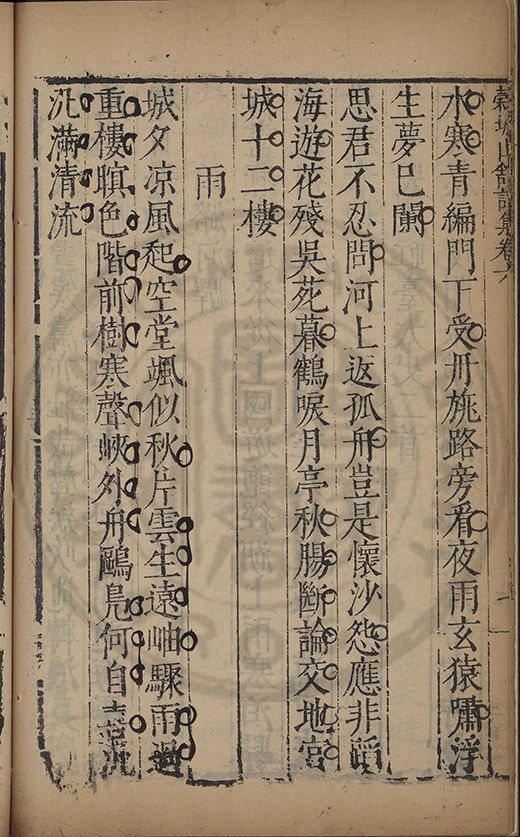 穀城山館詩集卷六
水寒青編門下受丹旐路旁看夜雨玄猿嘯浮
生夢已闌
思君不忍問河上返孤舟豈是懷沙怨應非蹈
海遊花殘吳苑暮鶴唳月亭秋腸斷論交地宮
城十二樓
雨
城夕凉風起空堂颯似秋片雲生遠岫驟雨過
重樓暝色階前樹寒聲峽外舟鷗鳧何自喜汎
汎滿清流